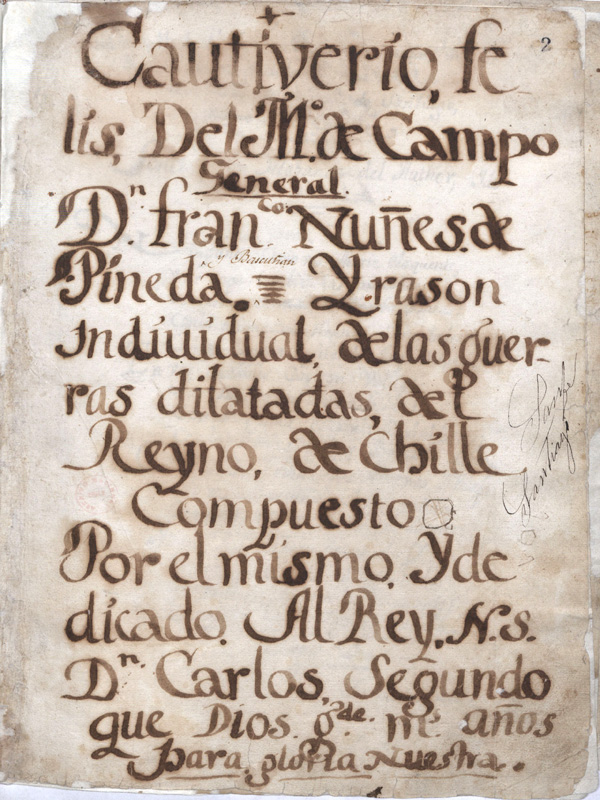 Cautiverio, fe
2
lis, Del M.º de Campo
General
D.ⁿ fran.co Nuñes. de
y Bascuñan
Pineda. Y. rason
Indiuidual, de las guer-
ras dilatadas, del
Reyno, de Chille
Compuesto
Por el mismo, Y de
dicado. Al Rey. N. S.
D.ⁿ Carlos, Segundo
que Dios. g.de m.s años
para gloria Nuestra.
Santiago